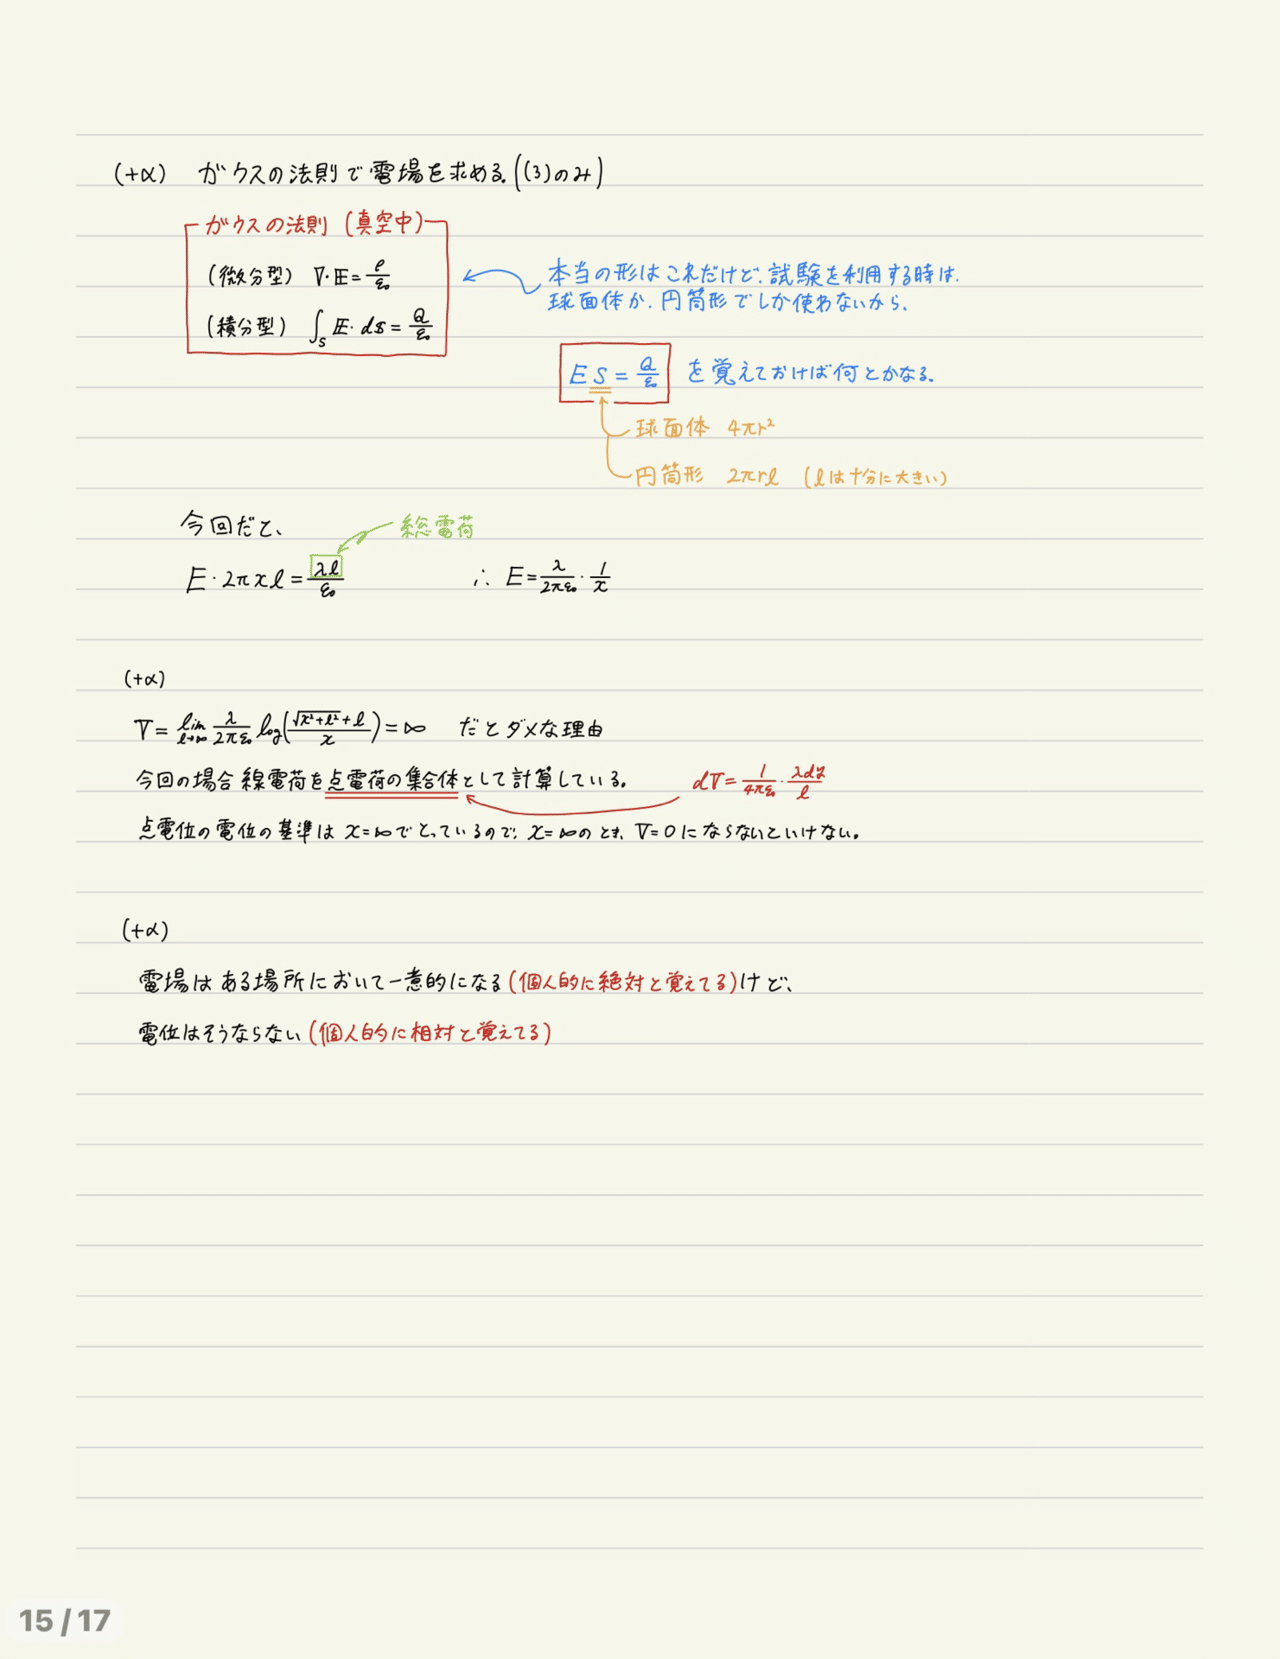 (+α) ガウスの法則で電場を求める。((3)のみ)
ガウスの法則 (真空中)
(微分型) ∇・E=ρ/ε₀
(積分型) ∫ₛ E・dS=Q/ε₀
本当の形はこれだけど、試験を利用する時は、
球面体か、円筒形でしか使わないから、
ES=Q/ε₀ を覚えておけば何とかなる。
球面体 4πr²
円筒形 2πrl (lは十分に大きい)
今回だと、
総電荷
E・2πxl=λl/ε₀ ∴ E=λ/2πε₀・1/x
(+α)
V=lim l→∞ λ/2πε₀ log(√x²+l²+l/x)=∞ だとダメな理由
今回の場合線電荷を点電荷の集合体として計算している。 dV=1/4πε₀・λdy/l
点電位の電位の基準はx=∞でとっているので、x=∞のとき、V=0にならないといけない。
(+α)
電場はある場所において一意的になる(個人的に絶対と覚えてる)けど、
電位はそうならない(個人的に相対と覚えてる)
15/17